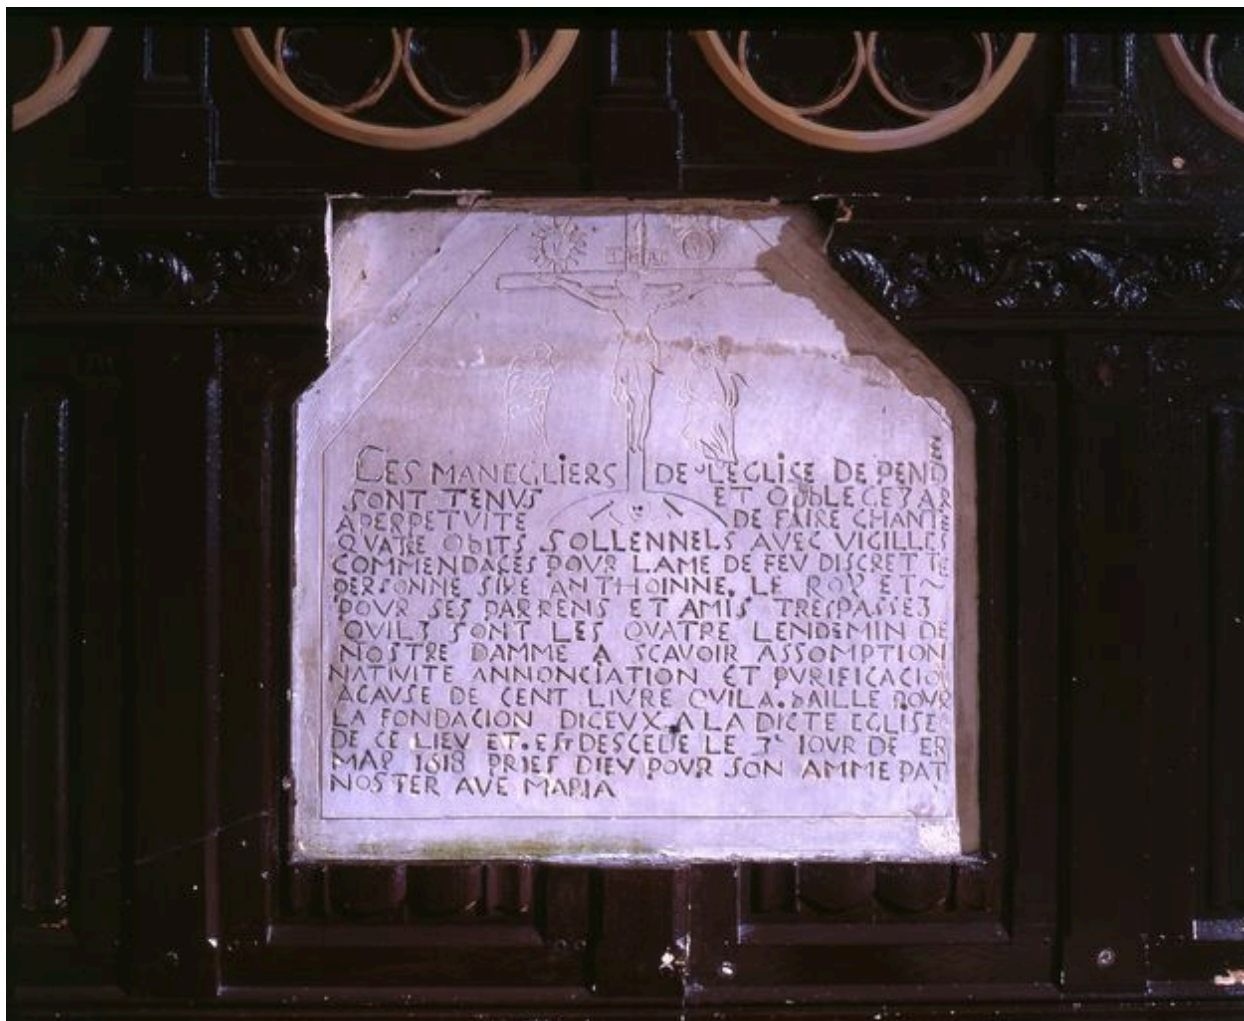 INRI
LES MANEGLIERS DE LEGLISE DE PEND
SONT TENUS ET OBLEGEZ AR
APERPETVITE DE FAIRE CHANTE
QVATRE ObITS SOLLENNELS AVEC VIGILLES
COMMENDACES POVR LAME DE FEV DISCRETTE
PERSONNE SIRE ANTHOINNE. LE ROY ET~
POVR SES PARRENS ET AMIS TRESPASSEZ
QVILZ SONT LES QVATRE LENDEMIN DE
NOSTRE DAMME A SCAVOIR ASSOMPTION
NATIVITE ANNONCIATION ET PVRIFICACIO
ACAVSE DE CENT LIVRE QVILA. bAILLE POVR
LA FONDACION DICEVX A LA DICTE EGLISE
DE CE LIEV ET. EST DESCEDE LE 3e IOVR DE ER
MAR 1618 PRIES DIEV POVR SON AMME PAT
NOSTER AVE MARIA